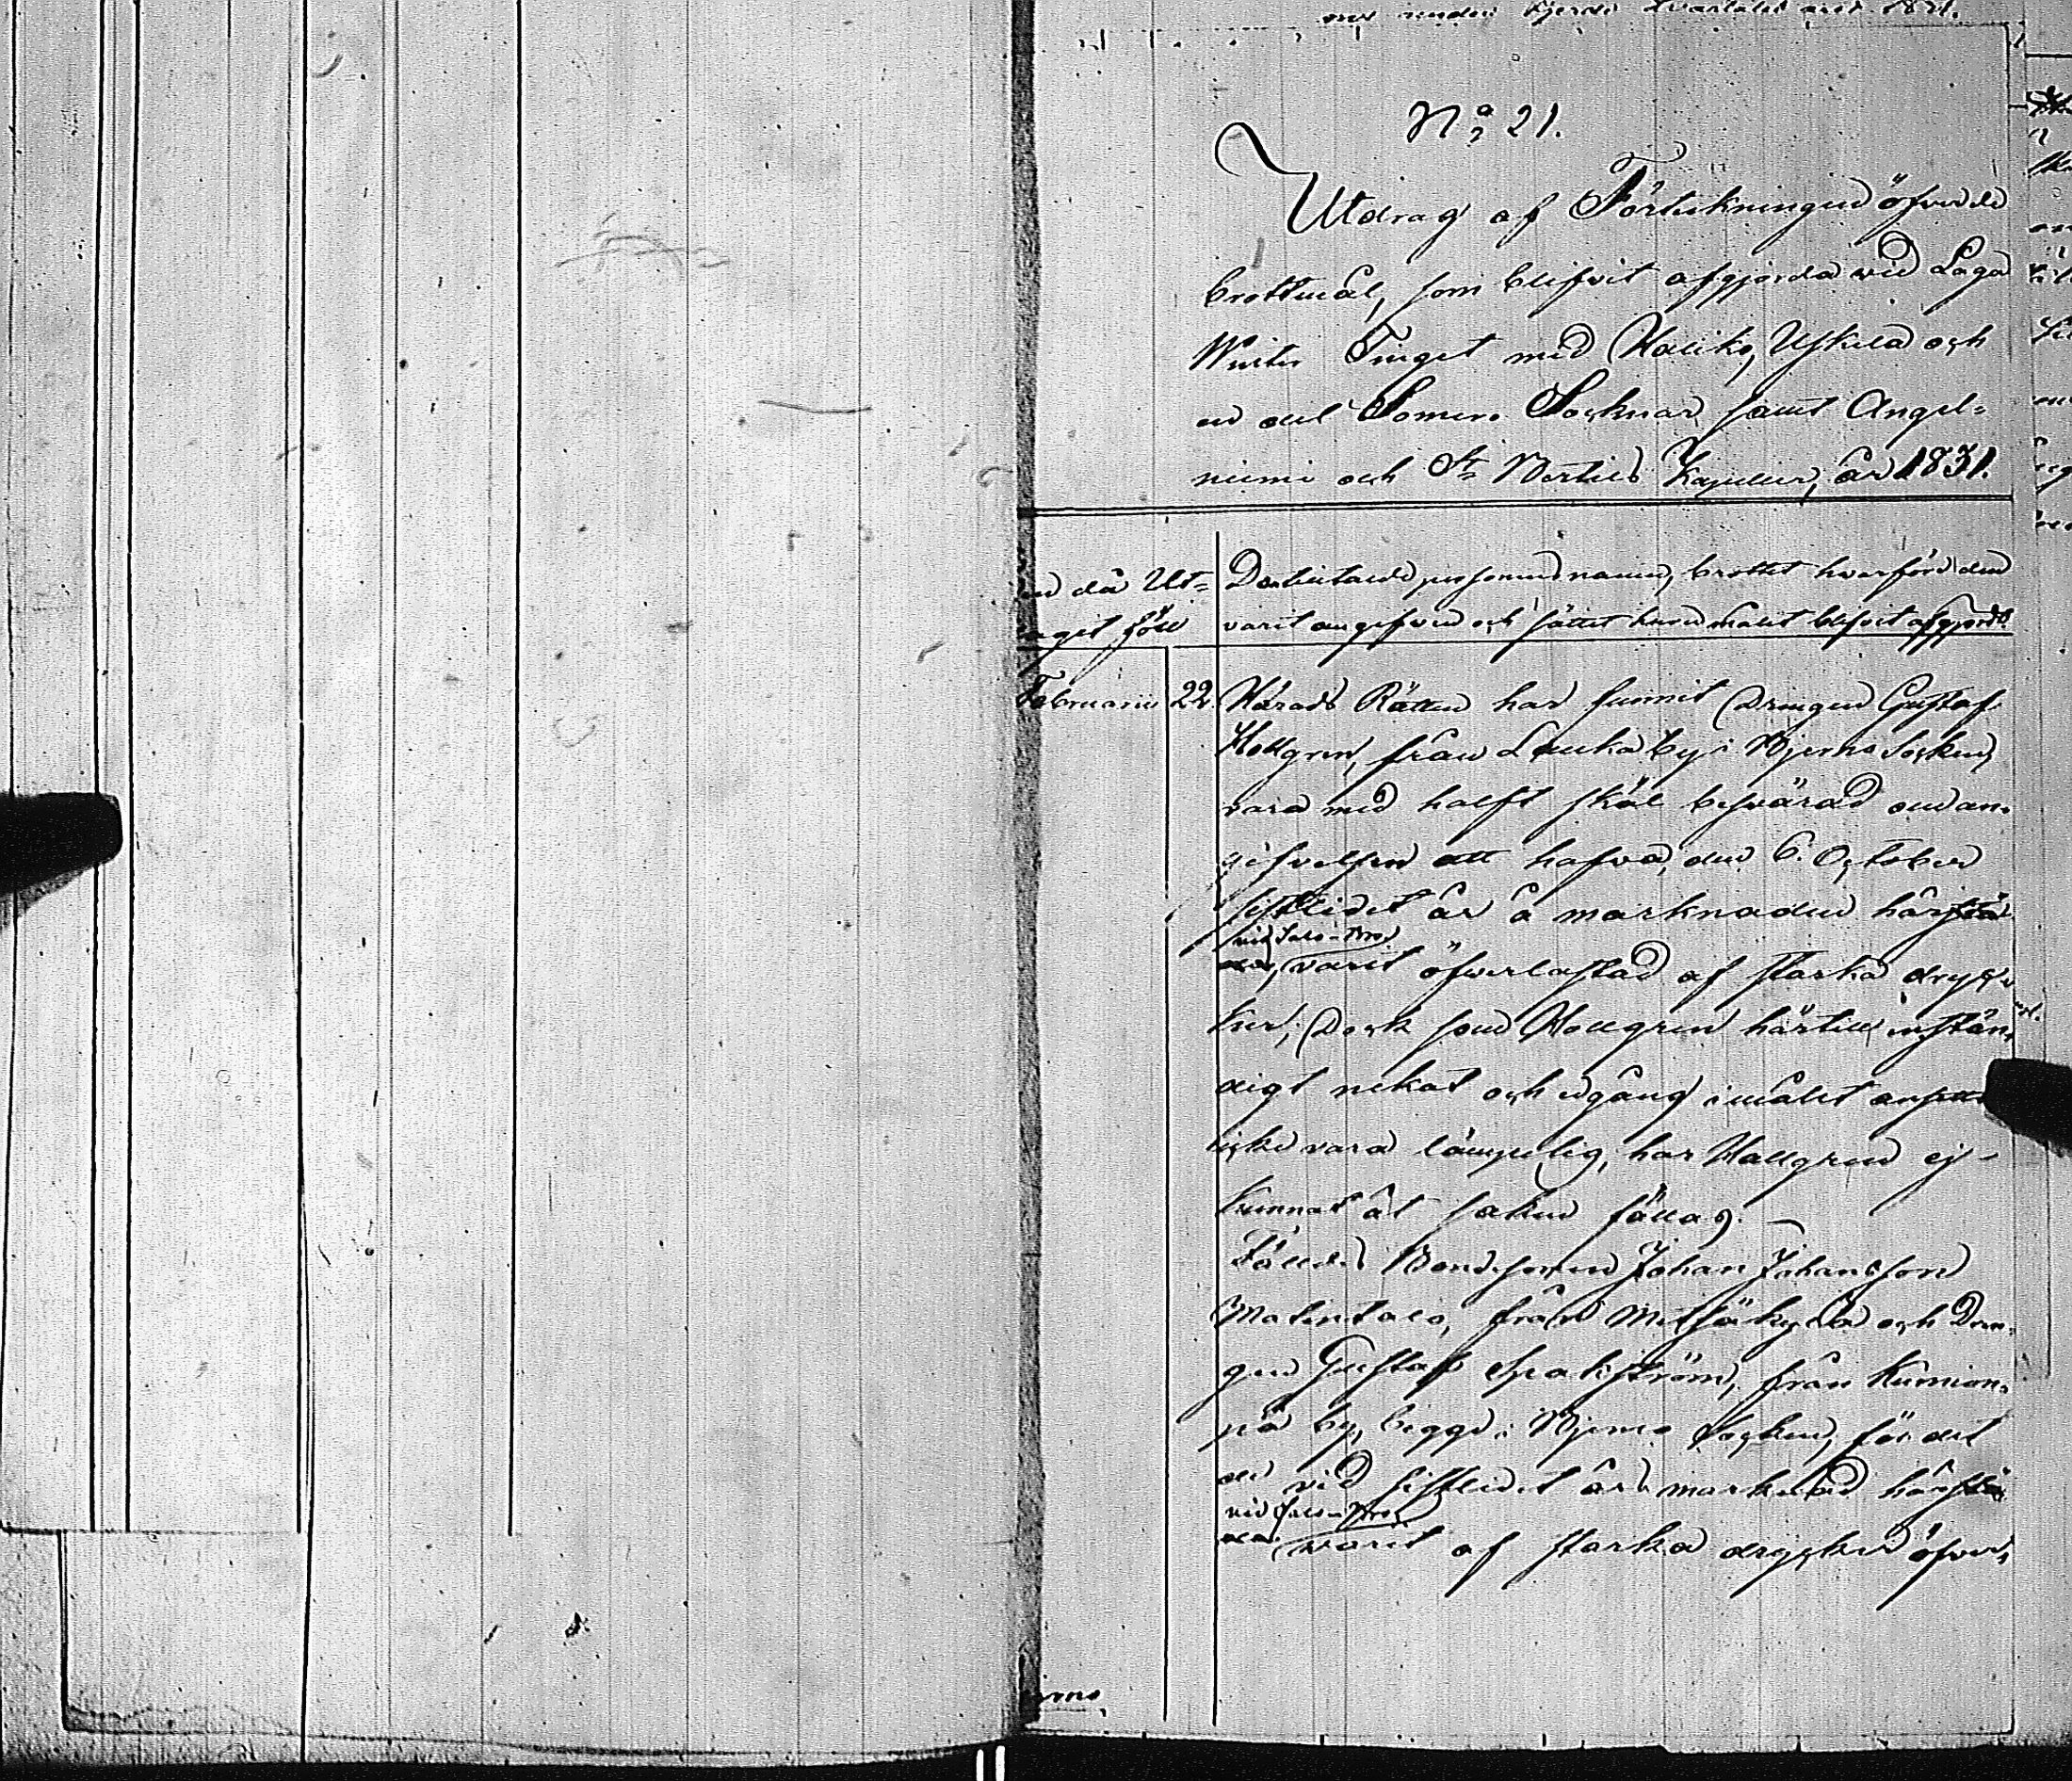 under fjerde Qvartalet året 1831.
No 21.
Utdrag af Förtekningen öfver de
brottmål, som blifvit afgjorda vid Laga
Winter Tinget med Haliko, Uskela och
en del Somero Socknar samt Angel-
niemi och St Bertils Kapeller, år 1831.
då Ut-
slaget föll
Den tilltalade personens namn, brottet hvarföre den
varit angifven och sättet huru målet blifvit afgjordt.
Februarii 22. Härads Rätten har funnit Drengen Gustaf
Hollgren, från Lauka by i Bjerno Socken,
vara med halft skäl besvärad om an-
gifvelsen att hafva, den 6. October
sistledet år å marknaden härstä
vid Salo-Bro
des, varit öfverlastad af starka dryc-
ker; Dock som Hollgren härtill instän-
digt nekat och edgång i målet ansetts
icke vara lämpelig, har Hallgren ej
kunnat åt saken fällas.
Fälldes Bondesonen Johan Johansson
Matintalo, från Metsäkylä och Dren-
gen Gustaf Spakström, från Kumion-
pä by, begge i Bjerno Socken, för det
de vid sistledet års marknad härstä
vid Salo-Bro
des varit af starka drycker öfver-